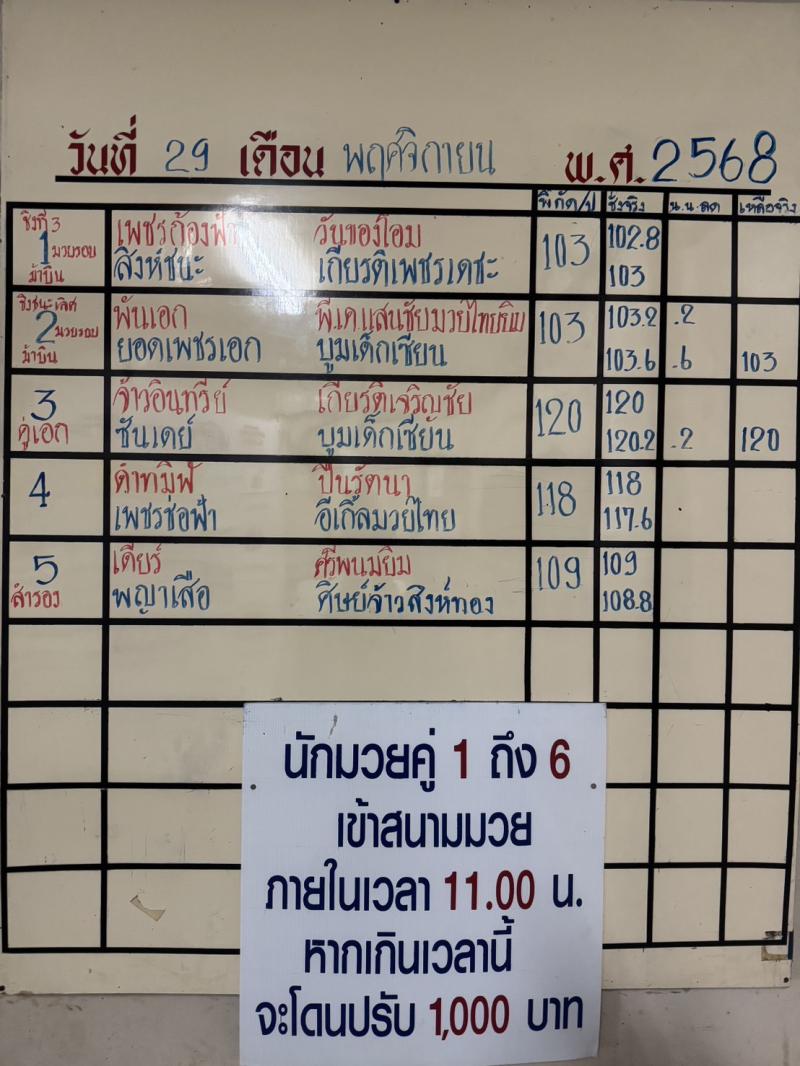 วันที่ 29 เดือน พฤศจิกายน พ.ศ. 2568
พิกัด/ป ชั่งจริง น.น.ลด เหลือจริง
ชิงที่ 3
1 มวยรอบ
ม้าบิน
เพชรก้องฟ้า วันของโอม 103 102.8
สิงห์ชนะ เกียรติเพชรเดชะ 103
ชิงชนะเลิศ
2 มวยรอบ
ม้าบิน
พันเอก พี.เค.แสนชัยมวยไทยยิม 103 103.2 .2
ยอดเพชรเอก บูมเด็กเซียน 103.6 .6 103
3 จ้าวอินทรีย์ เกียรติเจริญชัย 120 120
คู่เอก ซันเดย์ บูมเด็กเซียน 120.2 .2 120
4 ดำทมิฬ ปืนรัตนา 118 118
เพชรช่อฟ้า อีเกิ้ลมวยไทย 117.6
5 เดียร์ ศรีพนมยิม 109 109
สำรอง พญาเสือ ศิษย์จ้าวสิงห์ทอง 108.8
นักมวยคู่ 1 ถึง 6
เข้าสนามมวย
ภายในเวลา 11.00 น.
หากเกินเวลานี้
จะโดนปรับ 1,000 บาท